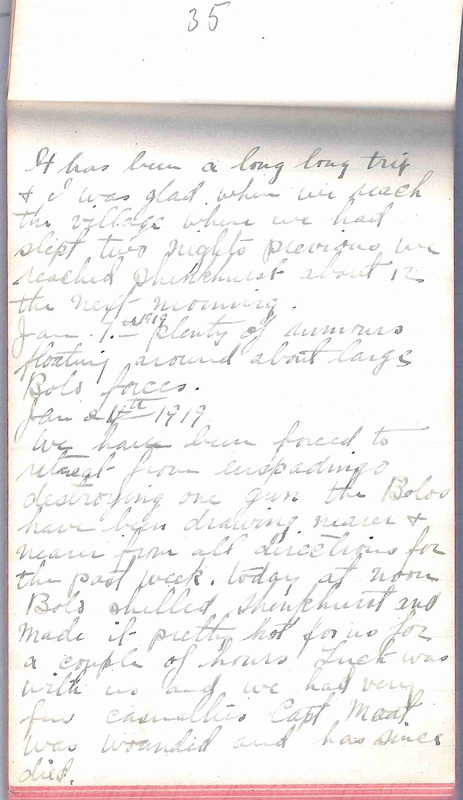 35
It has been a long long trip
& I was glad when we reach
the village where we had
slept two nights previous, we
reached Shenkhurst about 12
the next morning.
Jan. 7th 1919 plenty of rumours
floating around about large
Bolo forces.
Jan 24th 1919
We have been forced to
retreat from
destroying one gun the Bolos
have been drawing nearer &
nearer from all directions for
the past week. today at noon
Bolo shelled Shenkhurst and
made it pretty hot for us for
a couple of hours Luck was
with us and we had very
few casualties Capt Moat
was wounded and has since
died.